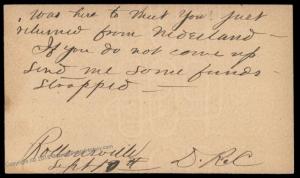 was here to meet you. just
returned from Nederland —
If you do not come up
send me some funds
strapped —
Rollinsville
Sept 10th D. R. C